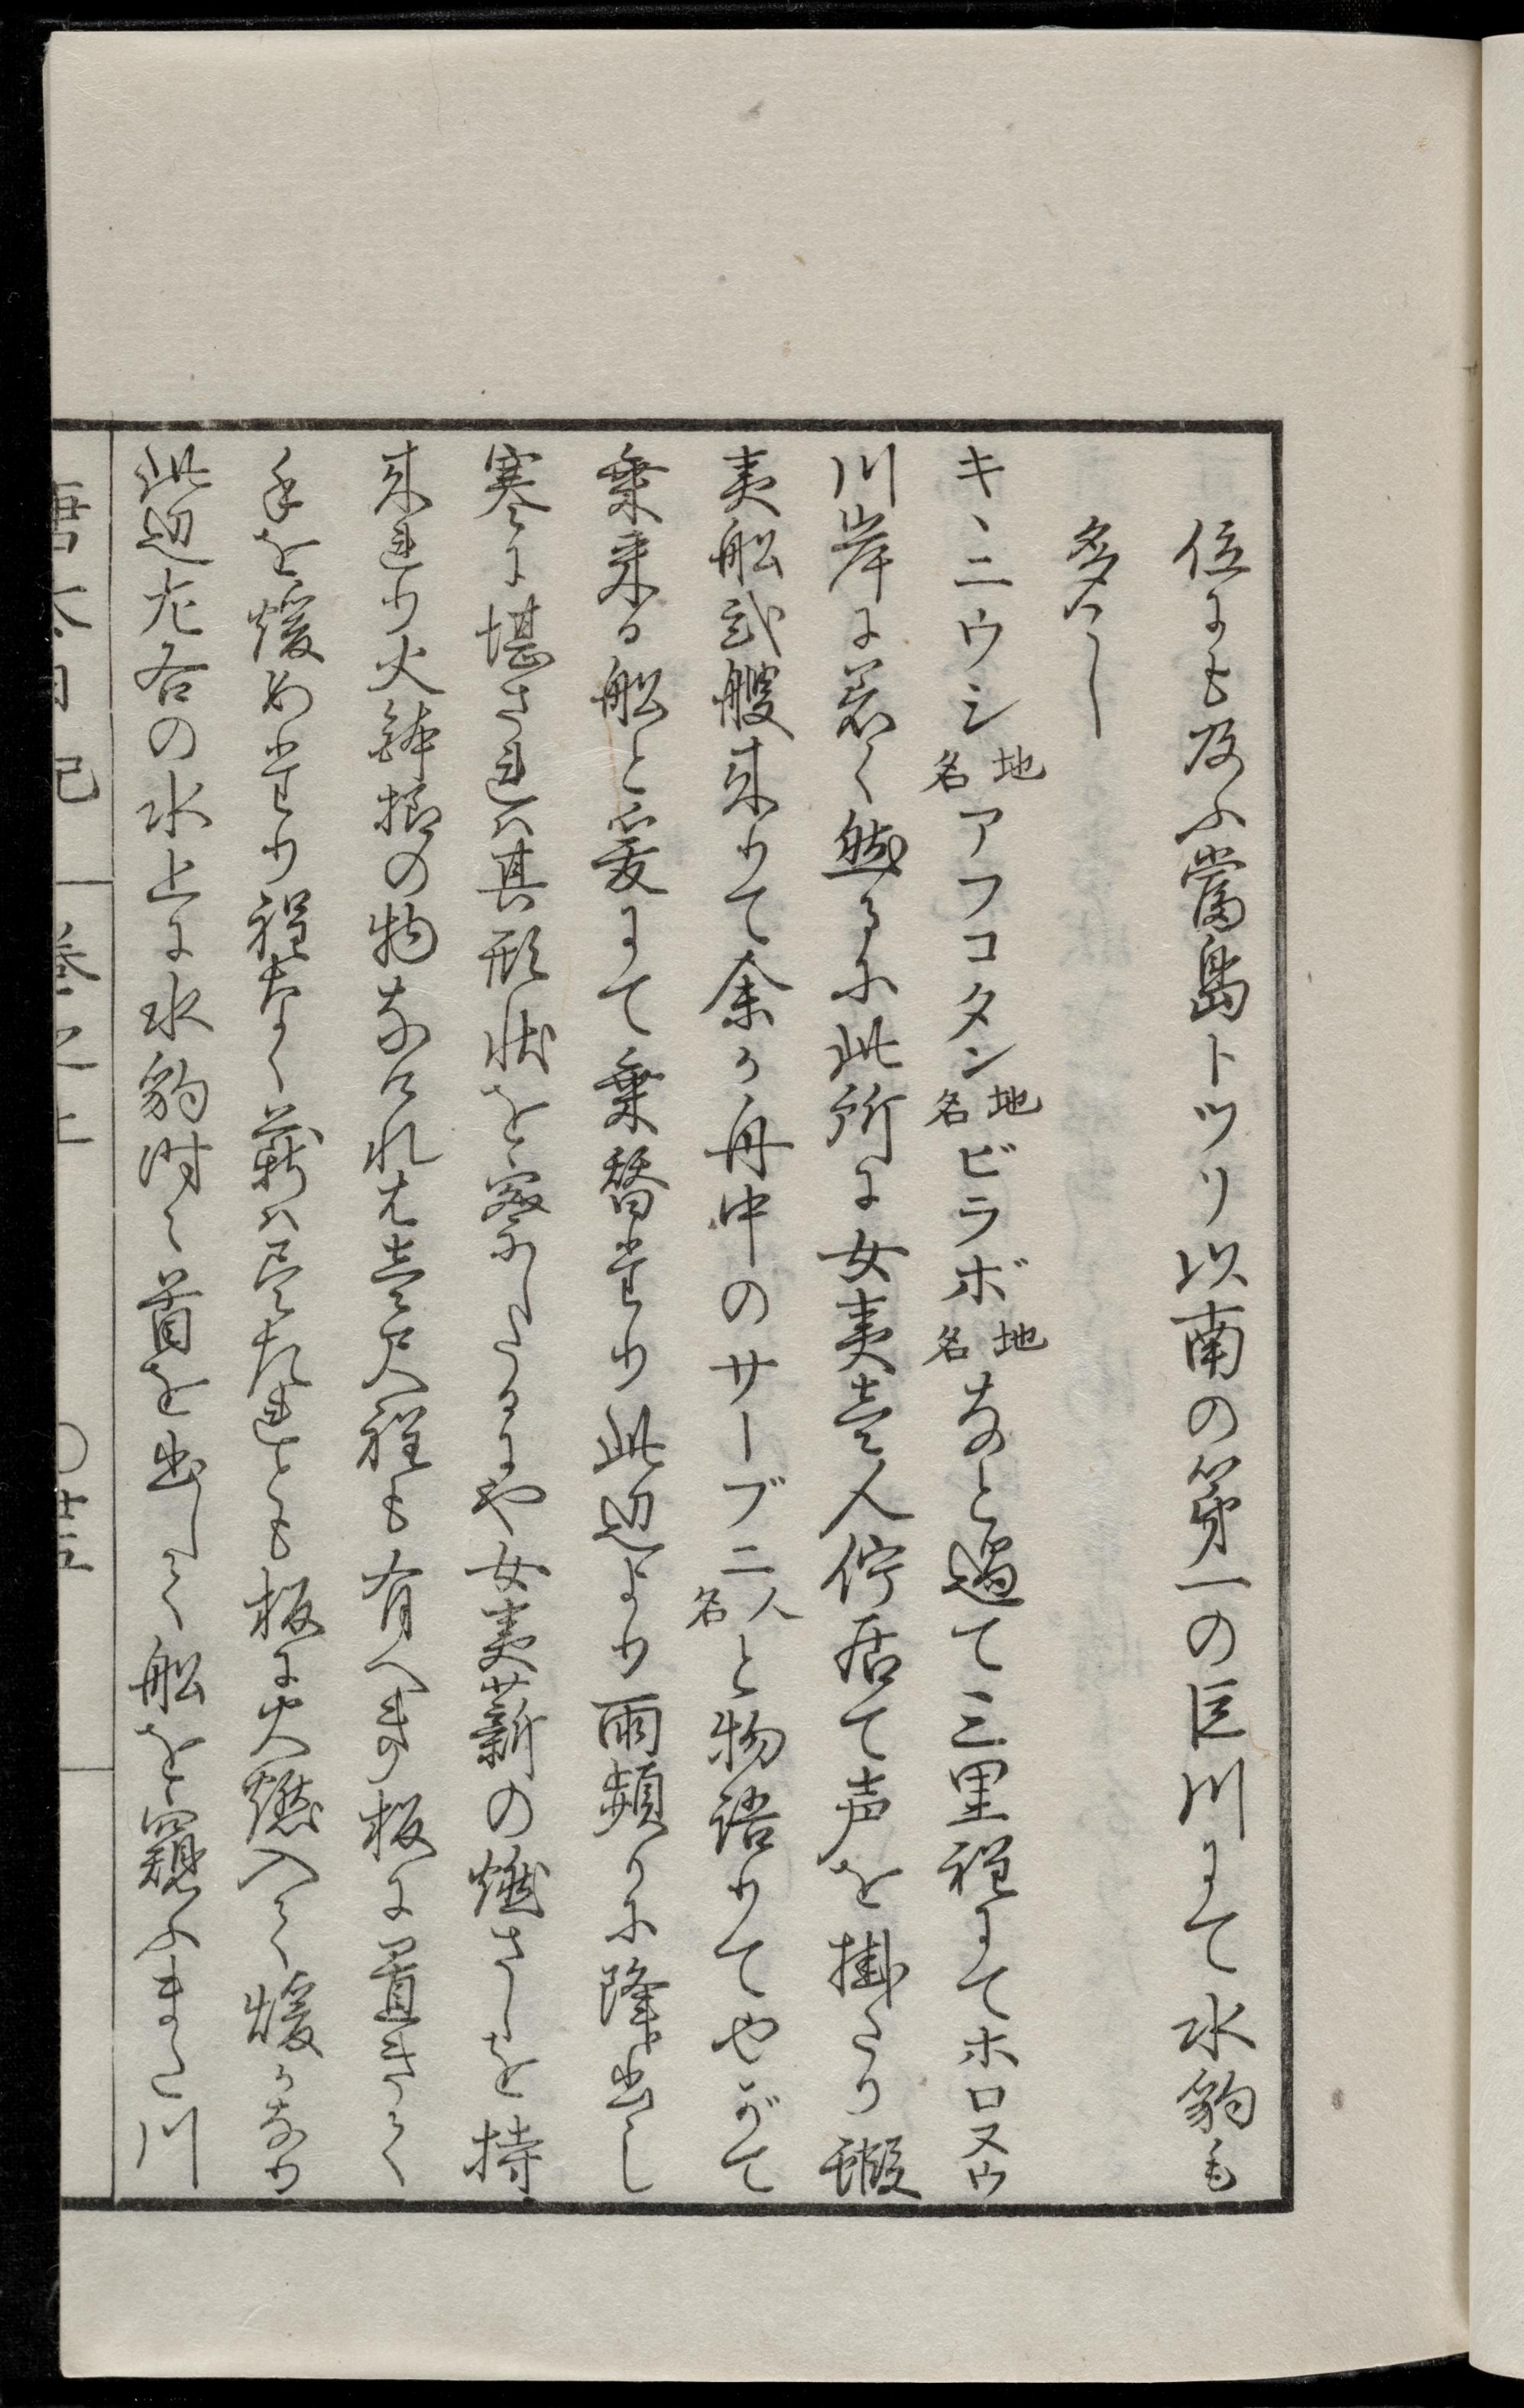 位にも及ふ当島トツリ以南の第一の巨川にて水豹も
多し
キヽニウシ地名アフコタン地名ビラボ地名なと過て三里程にてホロヌウ
川岸に着く然るに此所に女夷壱人佇居て声を掛たり蝦
夷船弐艘来りて余か舟中のサーブニ人名と物語りてやがて
乗来る船と爰にて乗替たり此辺より雨頻りに降出し
寒に堪されは其形状を察したるにや女夷薪の燃さしを持
来れり火鉢様の物なけれは壱尺程も有へき板に置きて
手を煖めたり程なく薪は尽たれとも板に火燃入て煖かなり
此辺左右の水上に水豹時々首を出して船を窺ふまた川
唐太日記 巻之上 〇廿五